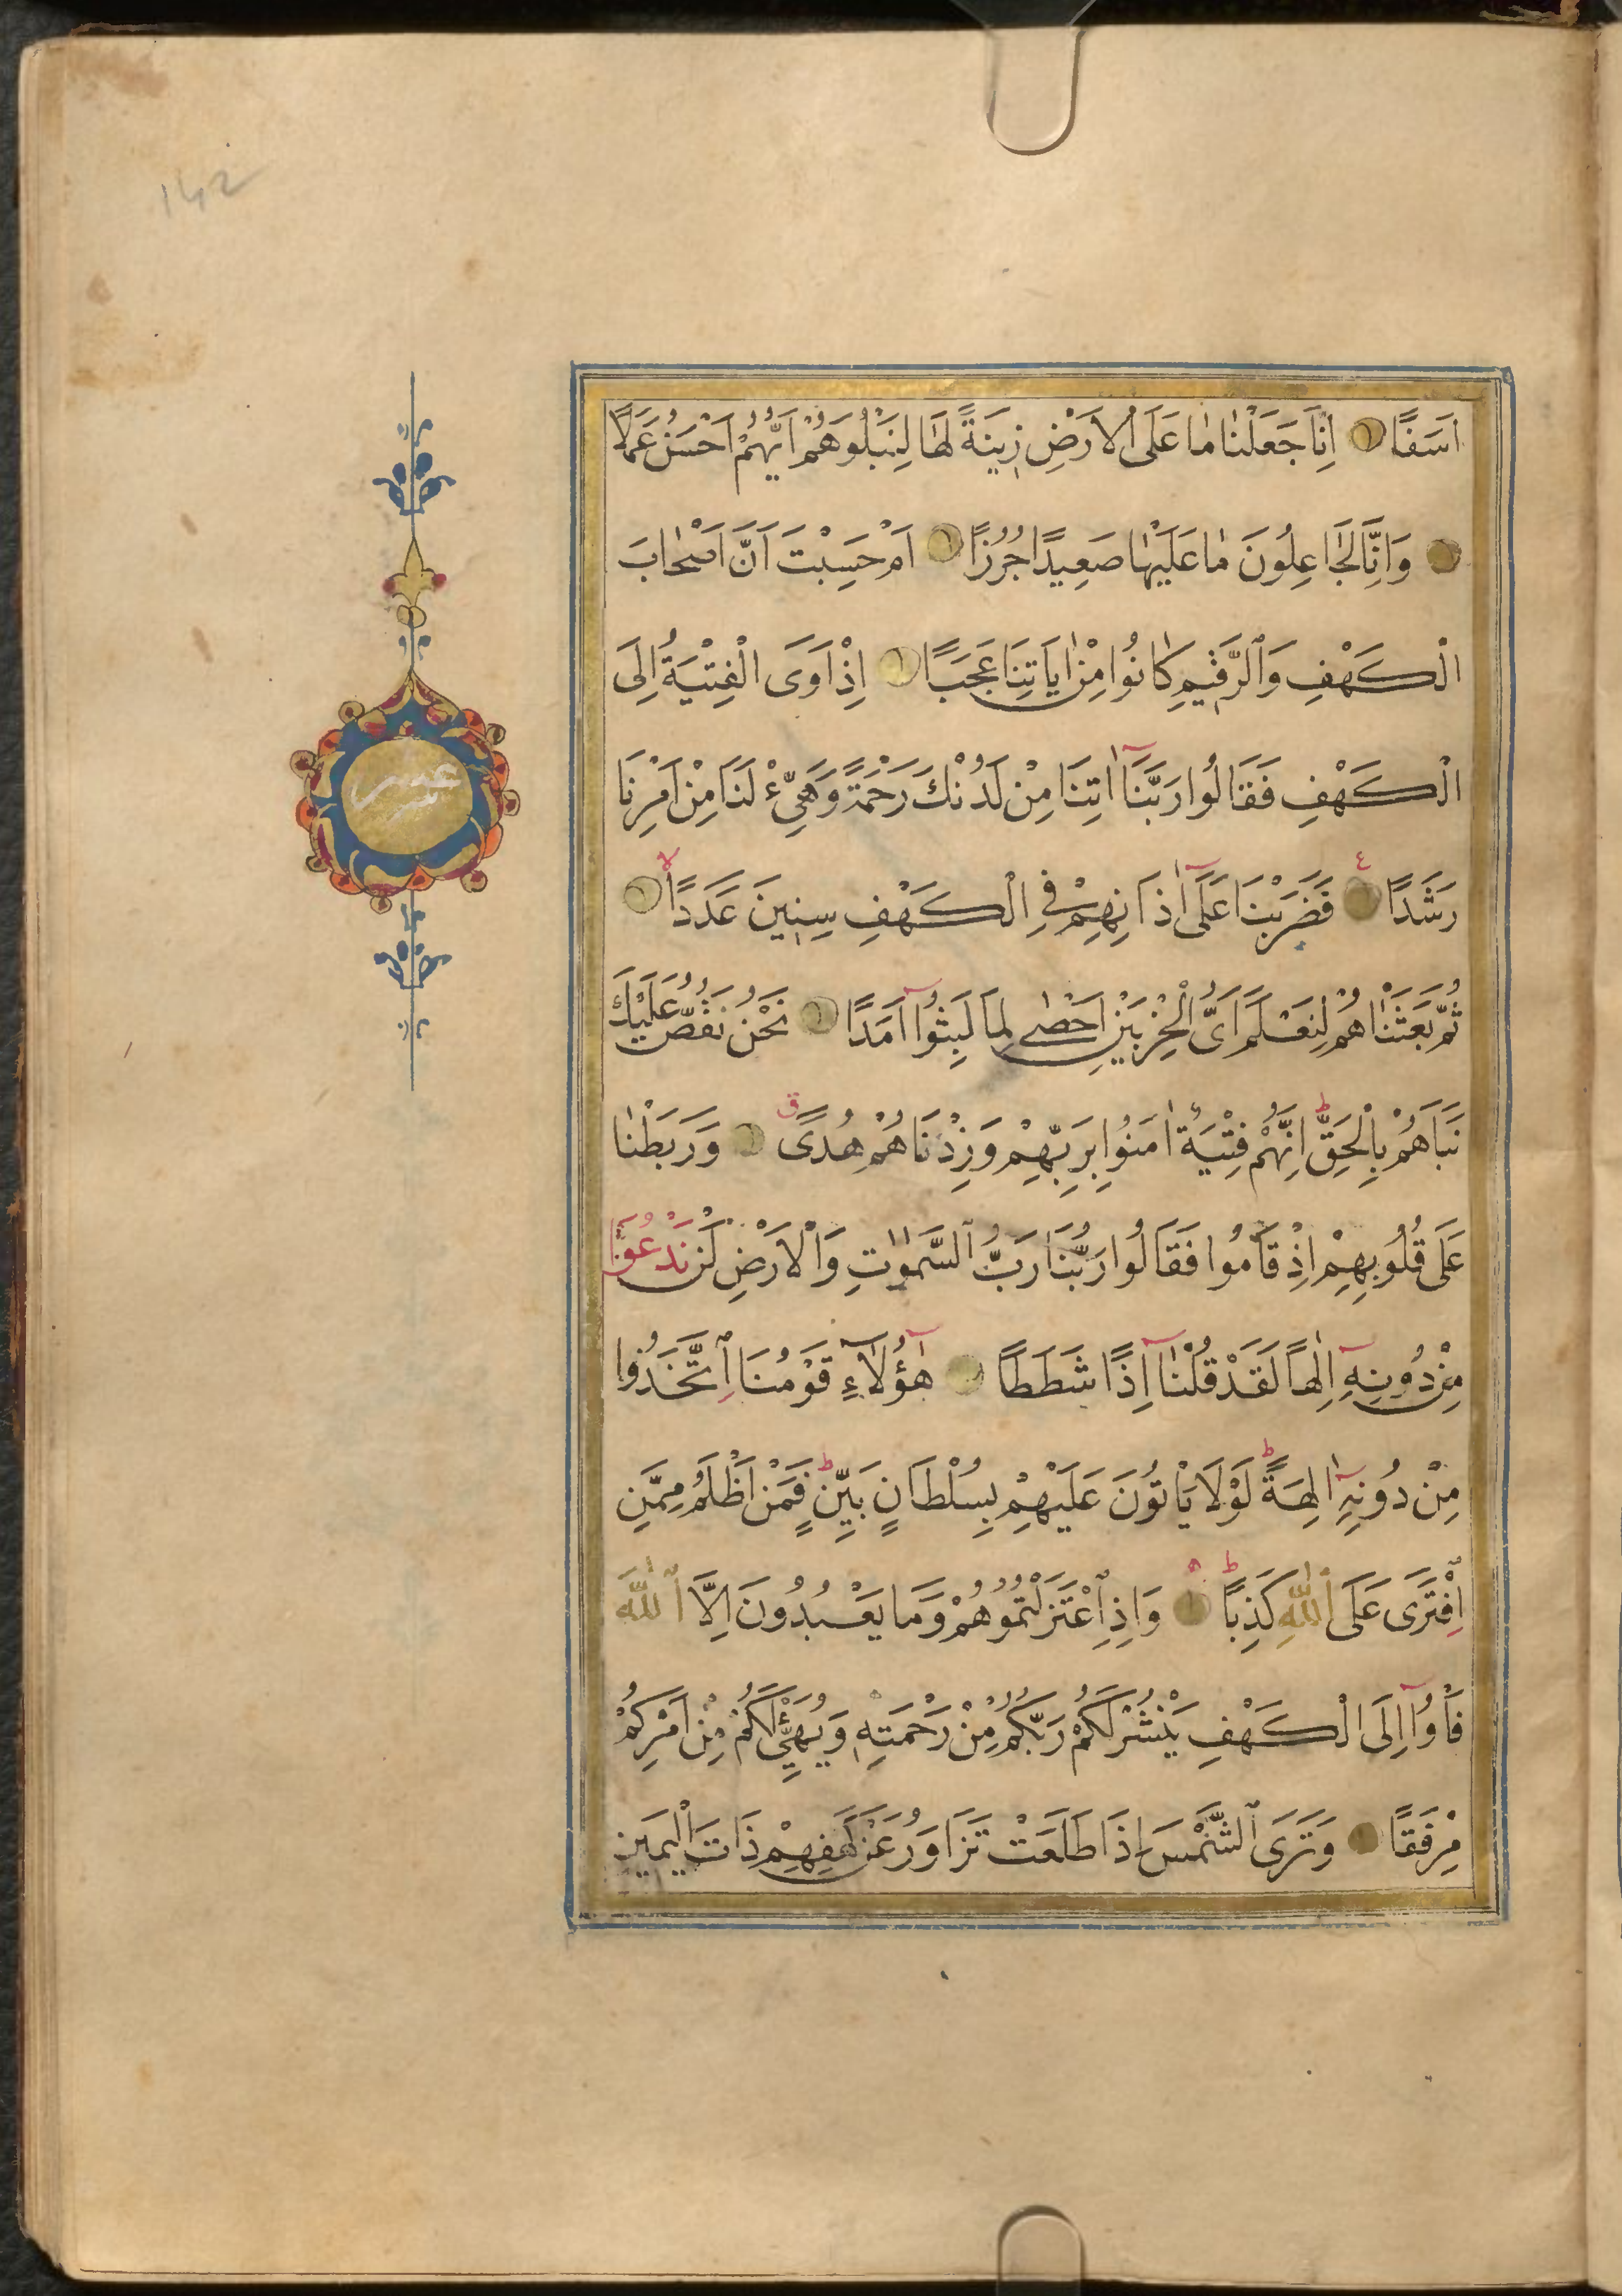 اَسَفًا اِنَّا جَعَلْنٰا مٰا عَلَى الْاَرْضِ زِينَةً لَهٰا لِنَبْلُوَهُمْ اَيُّهُمْ اَحْسَنُ عَمَلًا
وَاِنَّا لَجٰاعِلُونَ مٰا عَلَيْهٰا صَعِيدًا جُرُزًا اَمْ حَسِبْتَ اَنَّ اَصْحٰابَ
الْكَهْفِ وَٱلرَّقِيمِ كٰانُوا مِنْ اٰيَاتِنَا عَجَبًا اِذْ اَوَى الْفِتْيَةُ اِلَى
الْكَهْفِ فَقَالُوا رَبَّنَآ اٰتِنَا مِنْ لَدُنْكَ رَحْمَةً وَهَيِّئْ لَنَا مِنْ اَمْرِنَا
رَشَدًا ع فَضَرَبْنَا عَلَىٓ اٰذَانِهِمْ فِي الْكَهْفِ سِنِينَ عَدَدًا لا
ثُمَّ بَعَثْنٰاهُمْ لِنَعْلَمَ اَىُّ الْحِزْبَيْنِ اَحْصٰى لِمَا لَبِثُوٓا اَمَدًا نَحْنُ نَقُصُّ عَلَيْكَ
نَبَاَهُمْ بِالْحَقِّ ط اِنَّهُمْ فِتْيَةٌ اٰمَنُوا بِرَبِّهِمْ وَزِدْنَاهُمْ هُدًى ق وَرَبَطْنٰا
عَلَى قُلُوبِهِمْ اِذْ قَامُوا فَقَالُوا رَبُّنَا رَبُّ ٱلسَّمٰوٰتِ وَالْاَرْضِ لَنْ نَدْعُوَا۟
مِنْ دُونِهِٓ اِلٰهًا لَقَدْ قُلْنٰآ اِذًا شَطَطًا هٰٓؤُلَآءِ قَوْمُنَا اِتَّخَذُوا
مِنْ دُونِهِٓ اٰلِهَةً ط لَوْلَا يَاْتُونَ عَلَيْهِمْ بِسُلْطَانٍ بَيِّنٍ ط فَمَنْ اَظْلَمُ مِمَّنِ
افْتَرَى عَلَى ٱللّٰهِ كَذِبًا ط ه وَاِذِ ٱعْتَزَلْتُمُوهُمْ وَمَا يَعْبُدُونَ اِلَّا ٱللّٰهَ
فَاْوُٓا اِلَى الْكَهْفِ يَنْشُرْ لَكُمْ رَبُّكُمْ مِنْ رَحْمَتِهِ وَيُهَيِّئْ لَكُمْ مِنْ اَمْرِكُمْ
مِرْفَقًا وَتَرَى ٱلشَّمْسَ اِذَا طَلَعَتْ تَزَاوَرُ عَنْ كَهْفِهِمْ ذَاتَ الْيَمِينِ
عشر
142